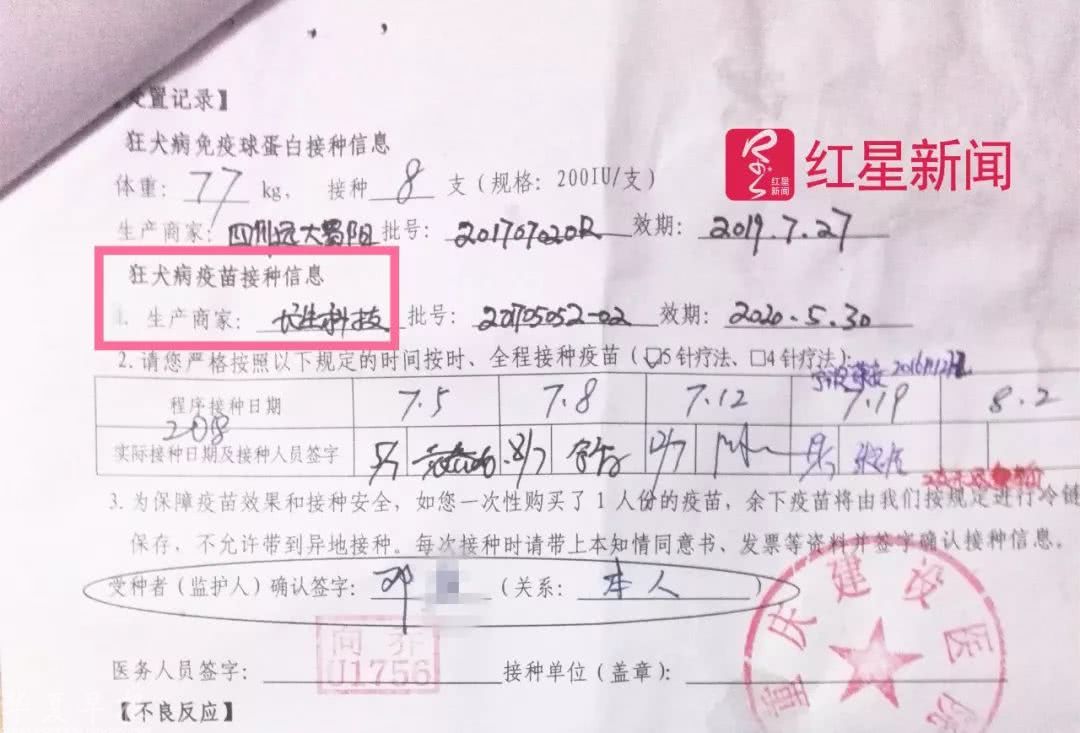 处置记录】
红星新闻
红星新闻
狂犬病免疫球蛋白接种信息
体重: 77 kg, 接种 8 支(规格: 200IU/支)
生产商家: 四川远大蜀阳 批号: 201707020R 效期: 2019.7.27
狂犬病疫苗接种信息
1. 生产商家: 长生科技 批号: 201705052-02 效期: 2020.5.30
2.请您严格按照以下规定的时间按时、全程接种疫苗(☑5针疗法、□4针疗法):
程序接种日期 7.5 7.8 7.12 7.19 8.2
208
实际接种日期及接种人员签字 5/7 8/7 12/7
3.为保障疫苗效果和接种安全,如您一次性购买了1人份的疫苗,余下疫苗将由我们按规定进行冷链
保存,不允许带到异地接种。每次接种时请带上本知情同意书、发票等资料并签字确认接种信息。
受种者(监护人)确认签字: 邓 (关系: 本人 )
重庆建设医院
U1756
医务人员签字: 接种单位(盖章):
【不良反应】
华夏早